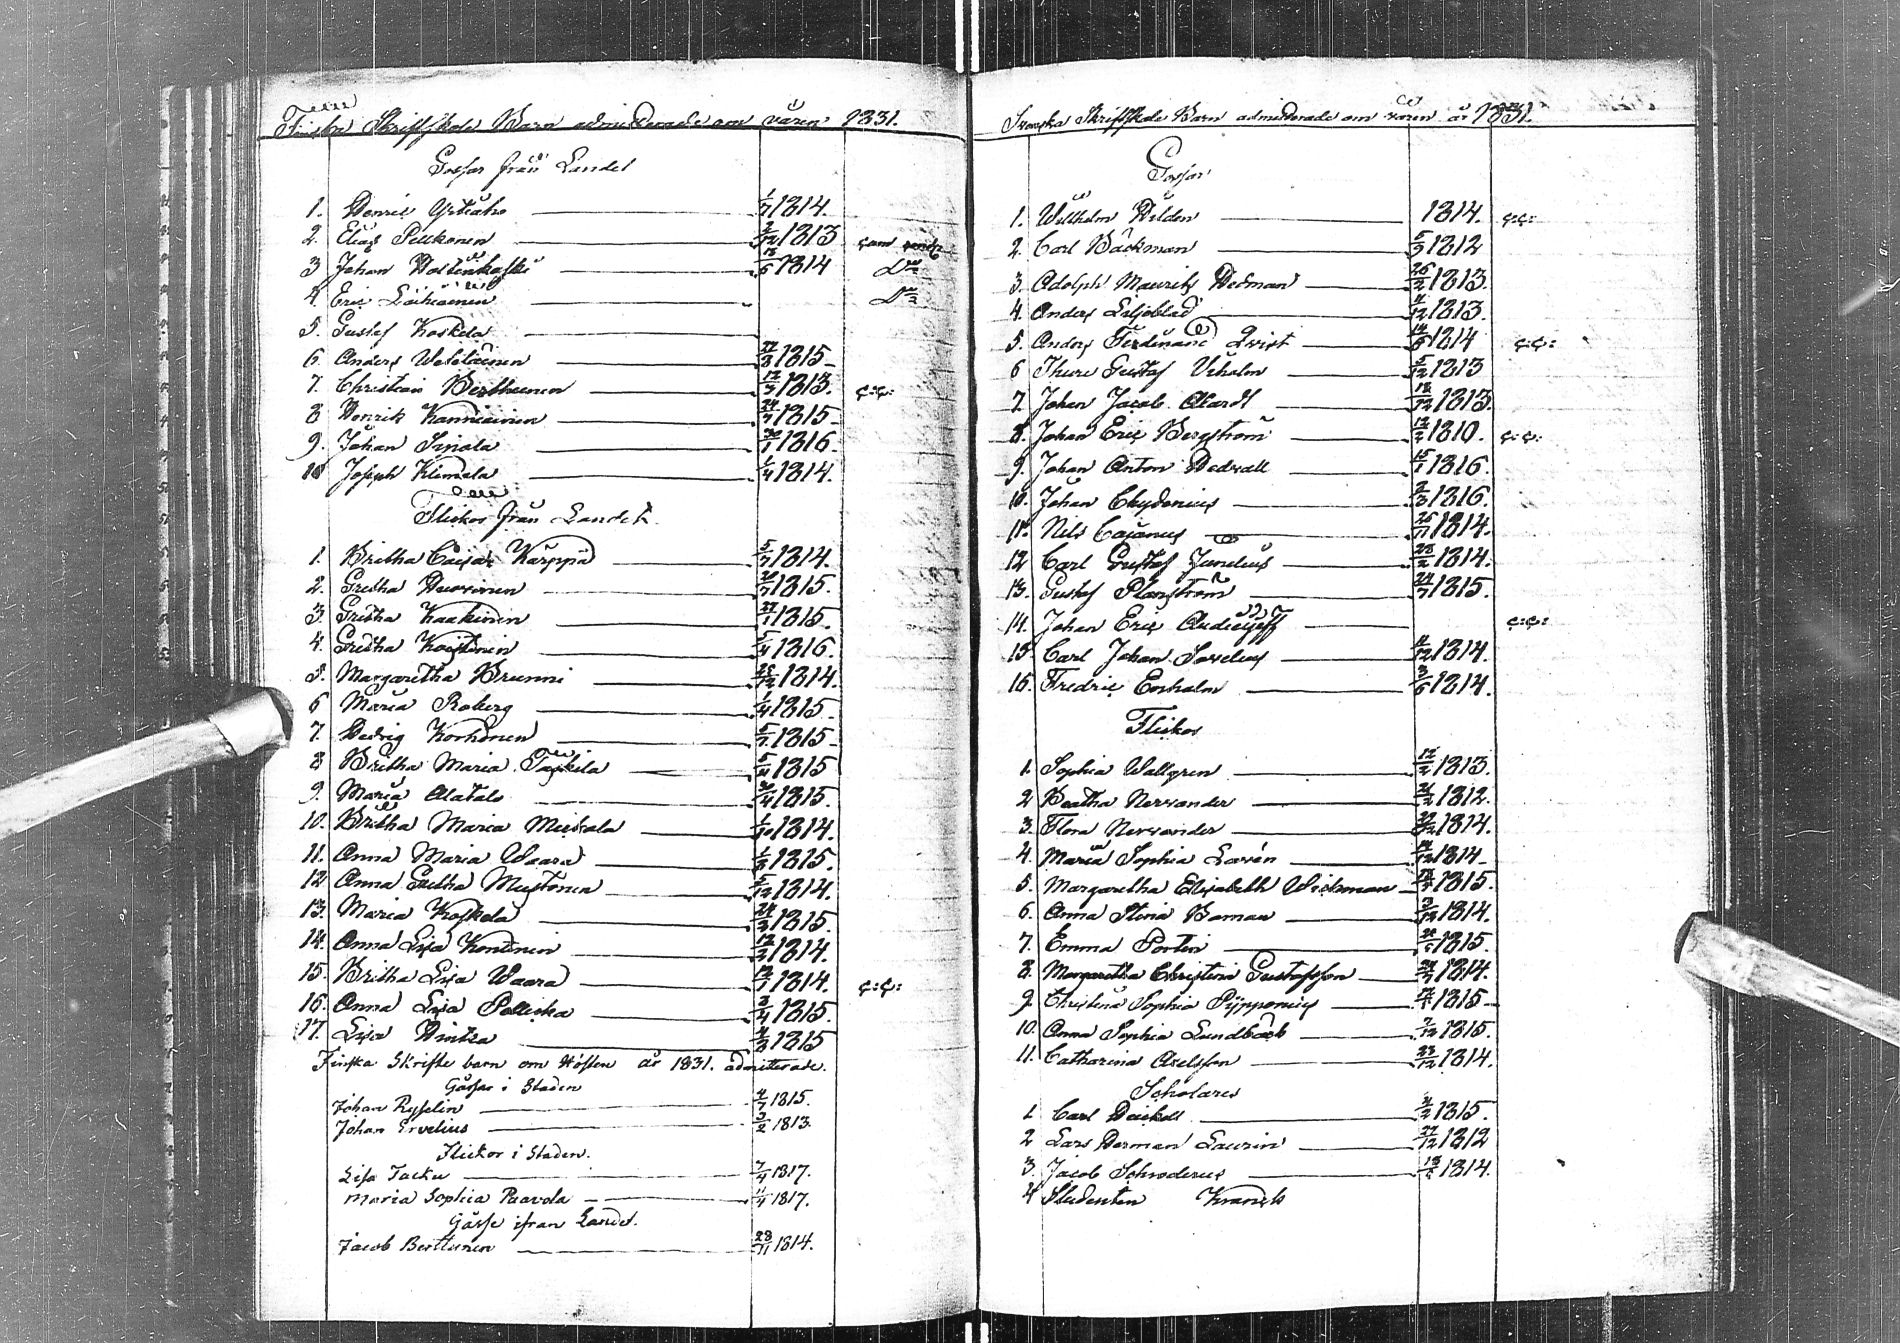 Finska Skriftskole Barn admitterade om våren 1831.
Gossar från Landet
1. Henric Yrtiaho 1/7 1814.
2. Elias Pelkonen 2/12 1813
3 Johan Hostikkoski 13/6 1814 D:o
4. Eric Laihiainen D:o
5. Gustaf Koskela
6. Anders Wetelainen 22/8 1815
7. Christian Berthunen 12/3 1813. c:c:
8 Henrik Kanniainen 24/7 1815
9. Johan Sipola 30/1 1816
10 Joseph Klemola 1/4 1814.
Flickor från Landet.
1. Britha Caisa Karppa 5/7 1814.
2. Gretha Huovinen 20/7 1815.
3. Gretha Kaakinen 27/1 1815.
4. Gretha Koistinen 5/4 1816.
5. Margaretha Brunni 25/12 1814.
6 Maria Roberg 1/4 1815
7. Hedvig Korhonen 5/7 1815
8 Britha Maria Taskila 5/11 1815
9. Maria Alatalo 30/4 1815.
10. Britha Maria Mickala 1/10 1814.
11. Anna Maria Waara 1/2 1815.
12 Anna Gretha Mustonen 5/12 1814.
13. Maria Koskela 24/2 1815.
14. Anna Lisa Kontinen 12/2 1814.
15. Britha Lisa Waara 12/7 1814. c:c:
16. Anna Lisa Pelliska 3/4 1815.
17. Lisa Hintsa 4/3 1815
Finska Skrifte barn om Hösten år 1831. admitterade.
Gåssar i Staden
Johan Rysselin 4/7 1815.
Johan Ervelius 3/2 1813.
Flickor i Staden.
Lisa Tacku 7/4 1817.
Maria Sophia Paavola 11/4 1817.
Gåsse ifran Landet.
Jacob Berttunen 28/11 1814.
Svenska Skriftskole Barn admitterade om våren år 1831.
Gossar
1. Wilhelm Hilden 1814. c:c:
2. Carl Bäckman 5/9 1812
3. Adolph Mauritz Hedman 26/2 1813.
4. Anders Liljeblad 4/12 1813.
5. Anders Ferdinand Qvist 14/8 1814 c:c:
6 Thure Gustaf Uhholm 5/12 1813
7. Johan Jacob Alardt 18/12 1813.
8. Johan Eric Bergström 12/2 1810. c:c:
9. Johan Anton Hedvall 15/1 1816.
10. Johan Chydenius 2/3 1816.
11. Nils Cajanus 25/11 1814.
12 Carl Gustaf Junelius 28/2 1814.
13. Gustaf Planström 24/7 1815.
14. Johan Eric c:c:
15 Carl Johan Sovelius 11/12 1814.
16. Fredric Enholm 3/6 1814.
Flickor
1. Sophia Wallgren 12/2 1813.
2 Beatha Nervander 21/2 1812.
3. Flora Nervander 22/12 1814.
4. Maria Sophia Lovén 14/12 1814
5. Margaretha Elisabeth Wichman 1815.
6. Anna Stina Boman 3/12 1814.
7. Emma Portin 1815.
8. Margaretha Christina Gustafsson 1814.
9. Christina Sophia Pipponius 1815
10. Anna Sophia Lundbäck 7/12 1815.
11. Catharina Axelsson 23/12 1814.
Scholares
1 Carl Heickell 21/2 1815.
2 Lars Herman Laurin 27/12 1812
3. Jacob Schroderus 1814.
4 Studenten Kranck